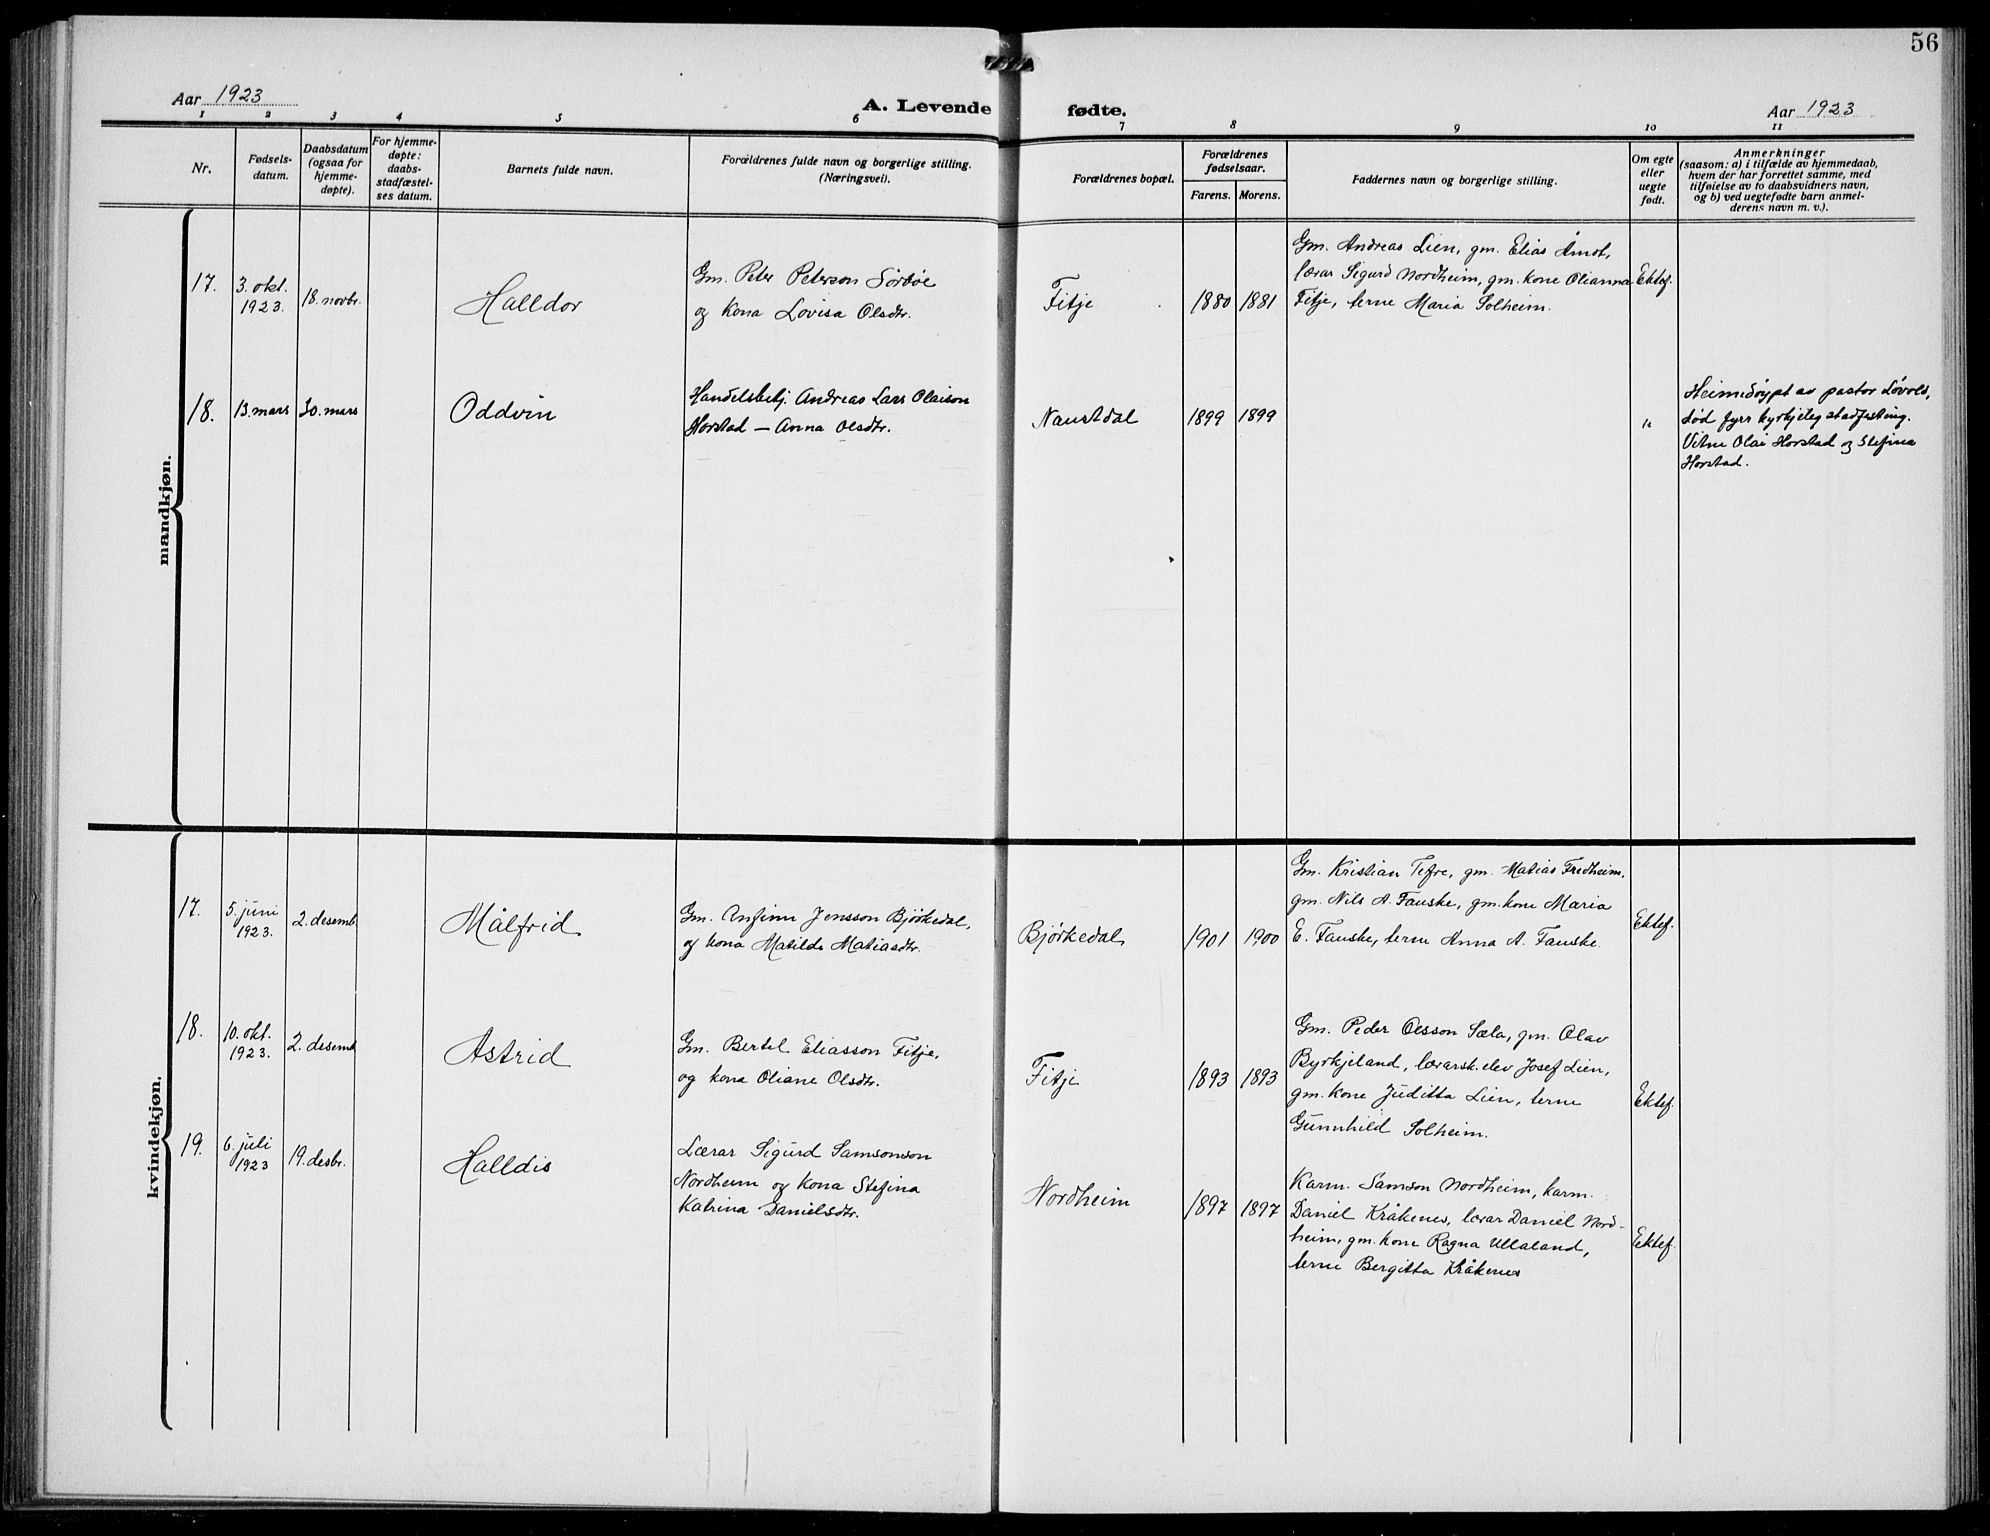 56
Aar 1923
A. Levende fødte.
Aar 1923
1 2 3 4 5 6 7 8 9 10 11
Nr.
Fødsels-
datum.
Daabsdatum
(ogsaa for
hjemme-
døpte).
For hjemme-
døpte:
daabs-
stadfæstel-
ses datum.
Barnets fulde navn.
Forældrenes fulde navn og borgerlige stilling.
(Næringsvei).
Forældrenes bopæl.
Forældrenes
fødselsaar.
Farens. Morens.
Faddernes navn og borgerlige stilling.
Om egte
eller
uegte
født.
Anmerkninger
(saasom: a) i tilfælde av hjemmedaab,
hvem der har forrettet samme, med
tilføielse av to daabsvidners navn,
og b) ved uegtefødte barn anmel-
derens navn m. v.).
mandkjøn.
17.
3. okt.
1923.
18. novbr.
Halldor
Gm. Peter Peterson Sørbøe
og kona Lovisa Olsdtr.
Fitje
1880 1881
Gm. Andreas Lien, gm. Elias Åmot,
lærar Sigurd Nordheim, gm. kone Olianna
Fitje, terne Maria Solheim.
Ektef.
18.
13. mars
30. mars
Oddvin
Handelsbetj. Andreas Lars Olaison
Horstad – Anna Olsdtr.
Naustdal
1899 1899
"
Heimedøypt av pastor Løvold,
død fyrr kyrkjeleg stadfesting.
Vitne Olai Horstad og Stefina
Horstad.
kvindekjøn.
17.
5. juni
1923.
2. desemb.
Målfrid
Gm. Anfinn Jensson Bjørkedal,
og kona Matilde Matiasdtr.
Bjørkedal
1901 1900
Gm. Kristian Tefre, gm. Matias Fredheim,
gm. Nils A. Fauske, gm. kone Maria
E. Fauske, terne Anna A. Fauske.
Ektef.
18.
10. okt.
1923.
2. desemb.
Astrid
Gm. Bertel Eliasson Fitje,
og kona Oliane Olsdtr.
Fitje
1893 1893
Gm. Peder Olsson Sæla, gm. Olav
Byrkjeland, lærarsk. elev Josef Lien,
gm. kone Juditta Lien, terne
Gunnhild Solheim.
Ektef.
19.
6. juli
1923
19. desbr.
Halldis
Lærar Sigurd Samsonson
Nordheim og kona Stefina
Katrina Danielsdtr.
Nordheim
1897 1897
Karm. Samson Nordheim, karm.
Daniel Kråkenes, lærar Daniel Nord-
heim, gm. kone Ragna Ullaland,
terne Bergitta Kråkenes
Ektef.